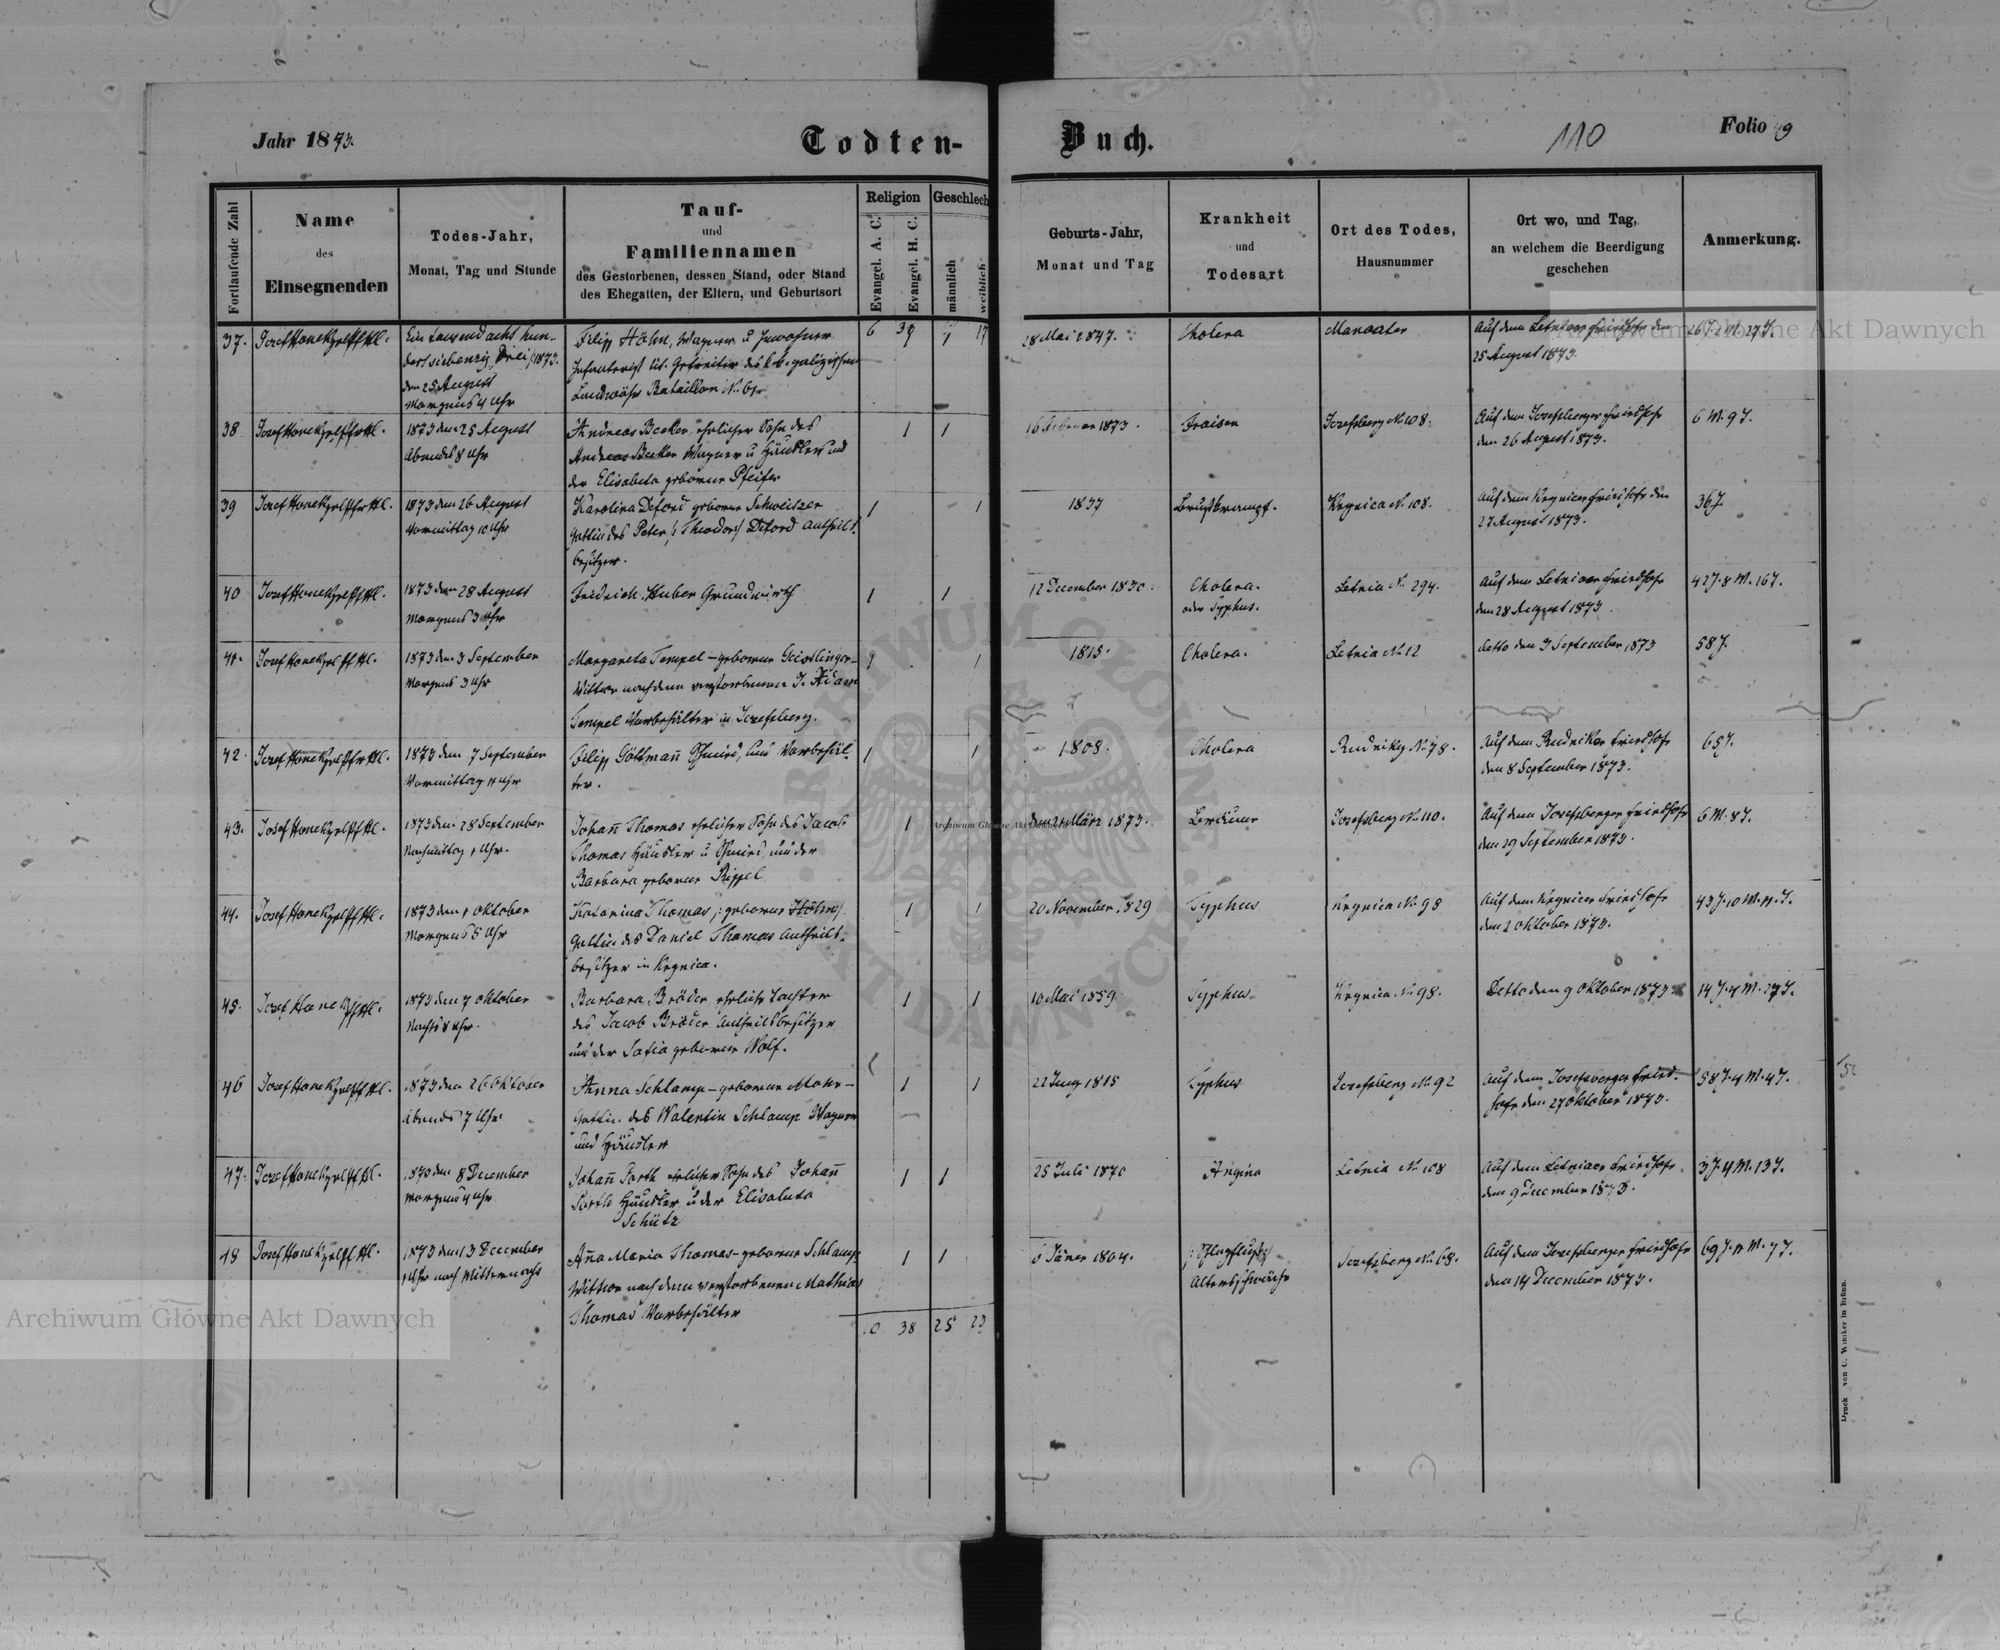 Jahr 1873.
Todten-Buch.
110
Folio 49
Fortlaufende Zahl
Name
des
Einsegnenden
Todes-Jahr,
Monat, Tag und Stunde
Tauf-
und
Familiennamen
des Gestorbenen, dessen Stand, oder Stand
des Ehegatten, der Eltern, und Geburtsort
Religion
Evangel. A. C.
Evangel. H. C.
Geschlech
männlich
weiblich
Geburts-Jahr,
Monat und Tag
Krankheit
und
Todesart
Ort des Todes,
Hausnummer
Ort wo, und Tag,
an welchem die Beerdigung
geschehen
Anmerkung.
37.
Ein tausend acht hun-
dert siebenzig Drei /1873.
den 25 August
Morgens 4 Uhr
Filipp Höhn, Wagner u
Infanterist
Landwehr Bataillon No 61.
28 Mai 1847.
Cholera
Auf dem Letniaer Friedhofe den
25 August 1873.
26 J. 2 M. 27 T.
38
1873 den 25 August
Abends 8 Uhr
Andreas Becker, ehelicher Sohn des
Andreas Becker Wagner u Häusler und
der Elisabeta geborene Pfeifer
1 1
1873.
Fraisen
Josefsberg No 108.
Auf dem Josefsberger Friedhofe
den 26 August 1873.
6 M. 9 T.
39
1873 den 26 August
Vormittag 10 Uhr
Karolina Deford geborene Schweitzer
Gattin des Peter /: Theodor :/ Deford Antheils
besitzer.
1 1
1837
Brustkrampf.
Krynica No 108.
Auf dem Krynicer Friedhofe den
27 August 1873.
36 J.
40
1873 den 28 August
Morgens 3 Uhr
Fridrich Huber Grundwirth
1 1
12 December 1830.
Cholera.
oder Typhus.
Letnia No 294.
Auf dem Letniaer Friedhofe
den 28 August 1873.
42 J. 8 M. 16 T.
41.
1873 den 3 September
Morgens 3 Uhr
Margareta Tempel – geborene Geislinger –
Witwe nach dem verstorbenen J. Adam
Tempel Vorbehälter in Josefsberg.
1 1
1815.
Cholera.
Letnia No 12
detto den 3 September 1873
58 J.
42.
1873 den 7 September
Vormittag 11 Uhr
Filipp Göttmann Schmied, und Vorbehäl-
ter.
1 1
1808.
Cholera
Rudniky No 78.
Auf dem Rudniker Friedhofe
den 8 September 1873.
65 J.
43.
1873 den 28 September
Nachmittag 1 Uhr.
Johann Thomas ehelicher Sohn des Jacob
Thomas Häusler u Schmied, und der
Barbara geborene Rippel
1
den 21 März 1873.
Josefsberg No 110.
Auf dem Josefsberger Friedhofe
den 29 September 1873.
6 M. 8 T.
44.
1873 den 1 Oktober
Morgens 5 Uhr
Katarina Thomas /: geborene Höhn :/
Gattin des Daniel Thomas Antheils-
besitzer in Krynica.
1 1
20 November 1829
Typhus
Krynica No 98
Auf dem Krynicer Friedhofe
den 2 Oktober 1873.
43 J. 10 M. 11 T.
45.
1873 den 7 Oktober
Nachts 8 Uhr.
Barbara Bröder eheliche Tochter
des Jacob Bröder Antheilsbesitzer
und der Sofia geborene Wolf.
1 1
10 Mai 1859
Typhus.
Krynica No 98.
Detto den 9 Oktober 1873
14 J. 4 M. 27 T.
46
1873 den 26 Oktober
Abends 7 Uhr
Anna Schlamp – geborene Mohr –
Gattin des Valentin Schlamp Wagner
und Häusler
1 1
22 Juny 1815
Typhus
Josefsberg No 92
Auf dem Josefsberger Fried-
hofe den 27 Oktober 1873.
58 J. 4 M. 4 T.
47.
1873 den 8 December
Morgens 4 Uhr
Johann Parth ehelicher Sohn des Johann
Parth Häusler, u der Elisabeta
Schütz
1 1
25 Juli 1870
Angina
Letnia No 108
Auf dem Letniaer Friedhofe
den 9 December 1873.
3 J. 4 M. 13 T.
48
1873 den 13 December
1 Uhr nach Mitternacht
Anna Maria Thomas – geborene Schlamp
Witwe nach dem verstorbenen Mathias
Thomas Vorbehälter
1 1
6 Jäner 1804.
Altersschwäche
Josefsberg No 68.
Auf dem Josefsberger Friedhofe
den 14 December 1873.
69 J. 11 M. 7 T.
38 25 23
Druck von C. Winiker in Brünn.
Archiwum Główne Akt Dawnych
Archiwum Główne Akt Dawnych
Archiwum Główne Akt Dawnych
ARCHIWUM GŁÓWNE
AKT DAWNYCH